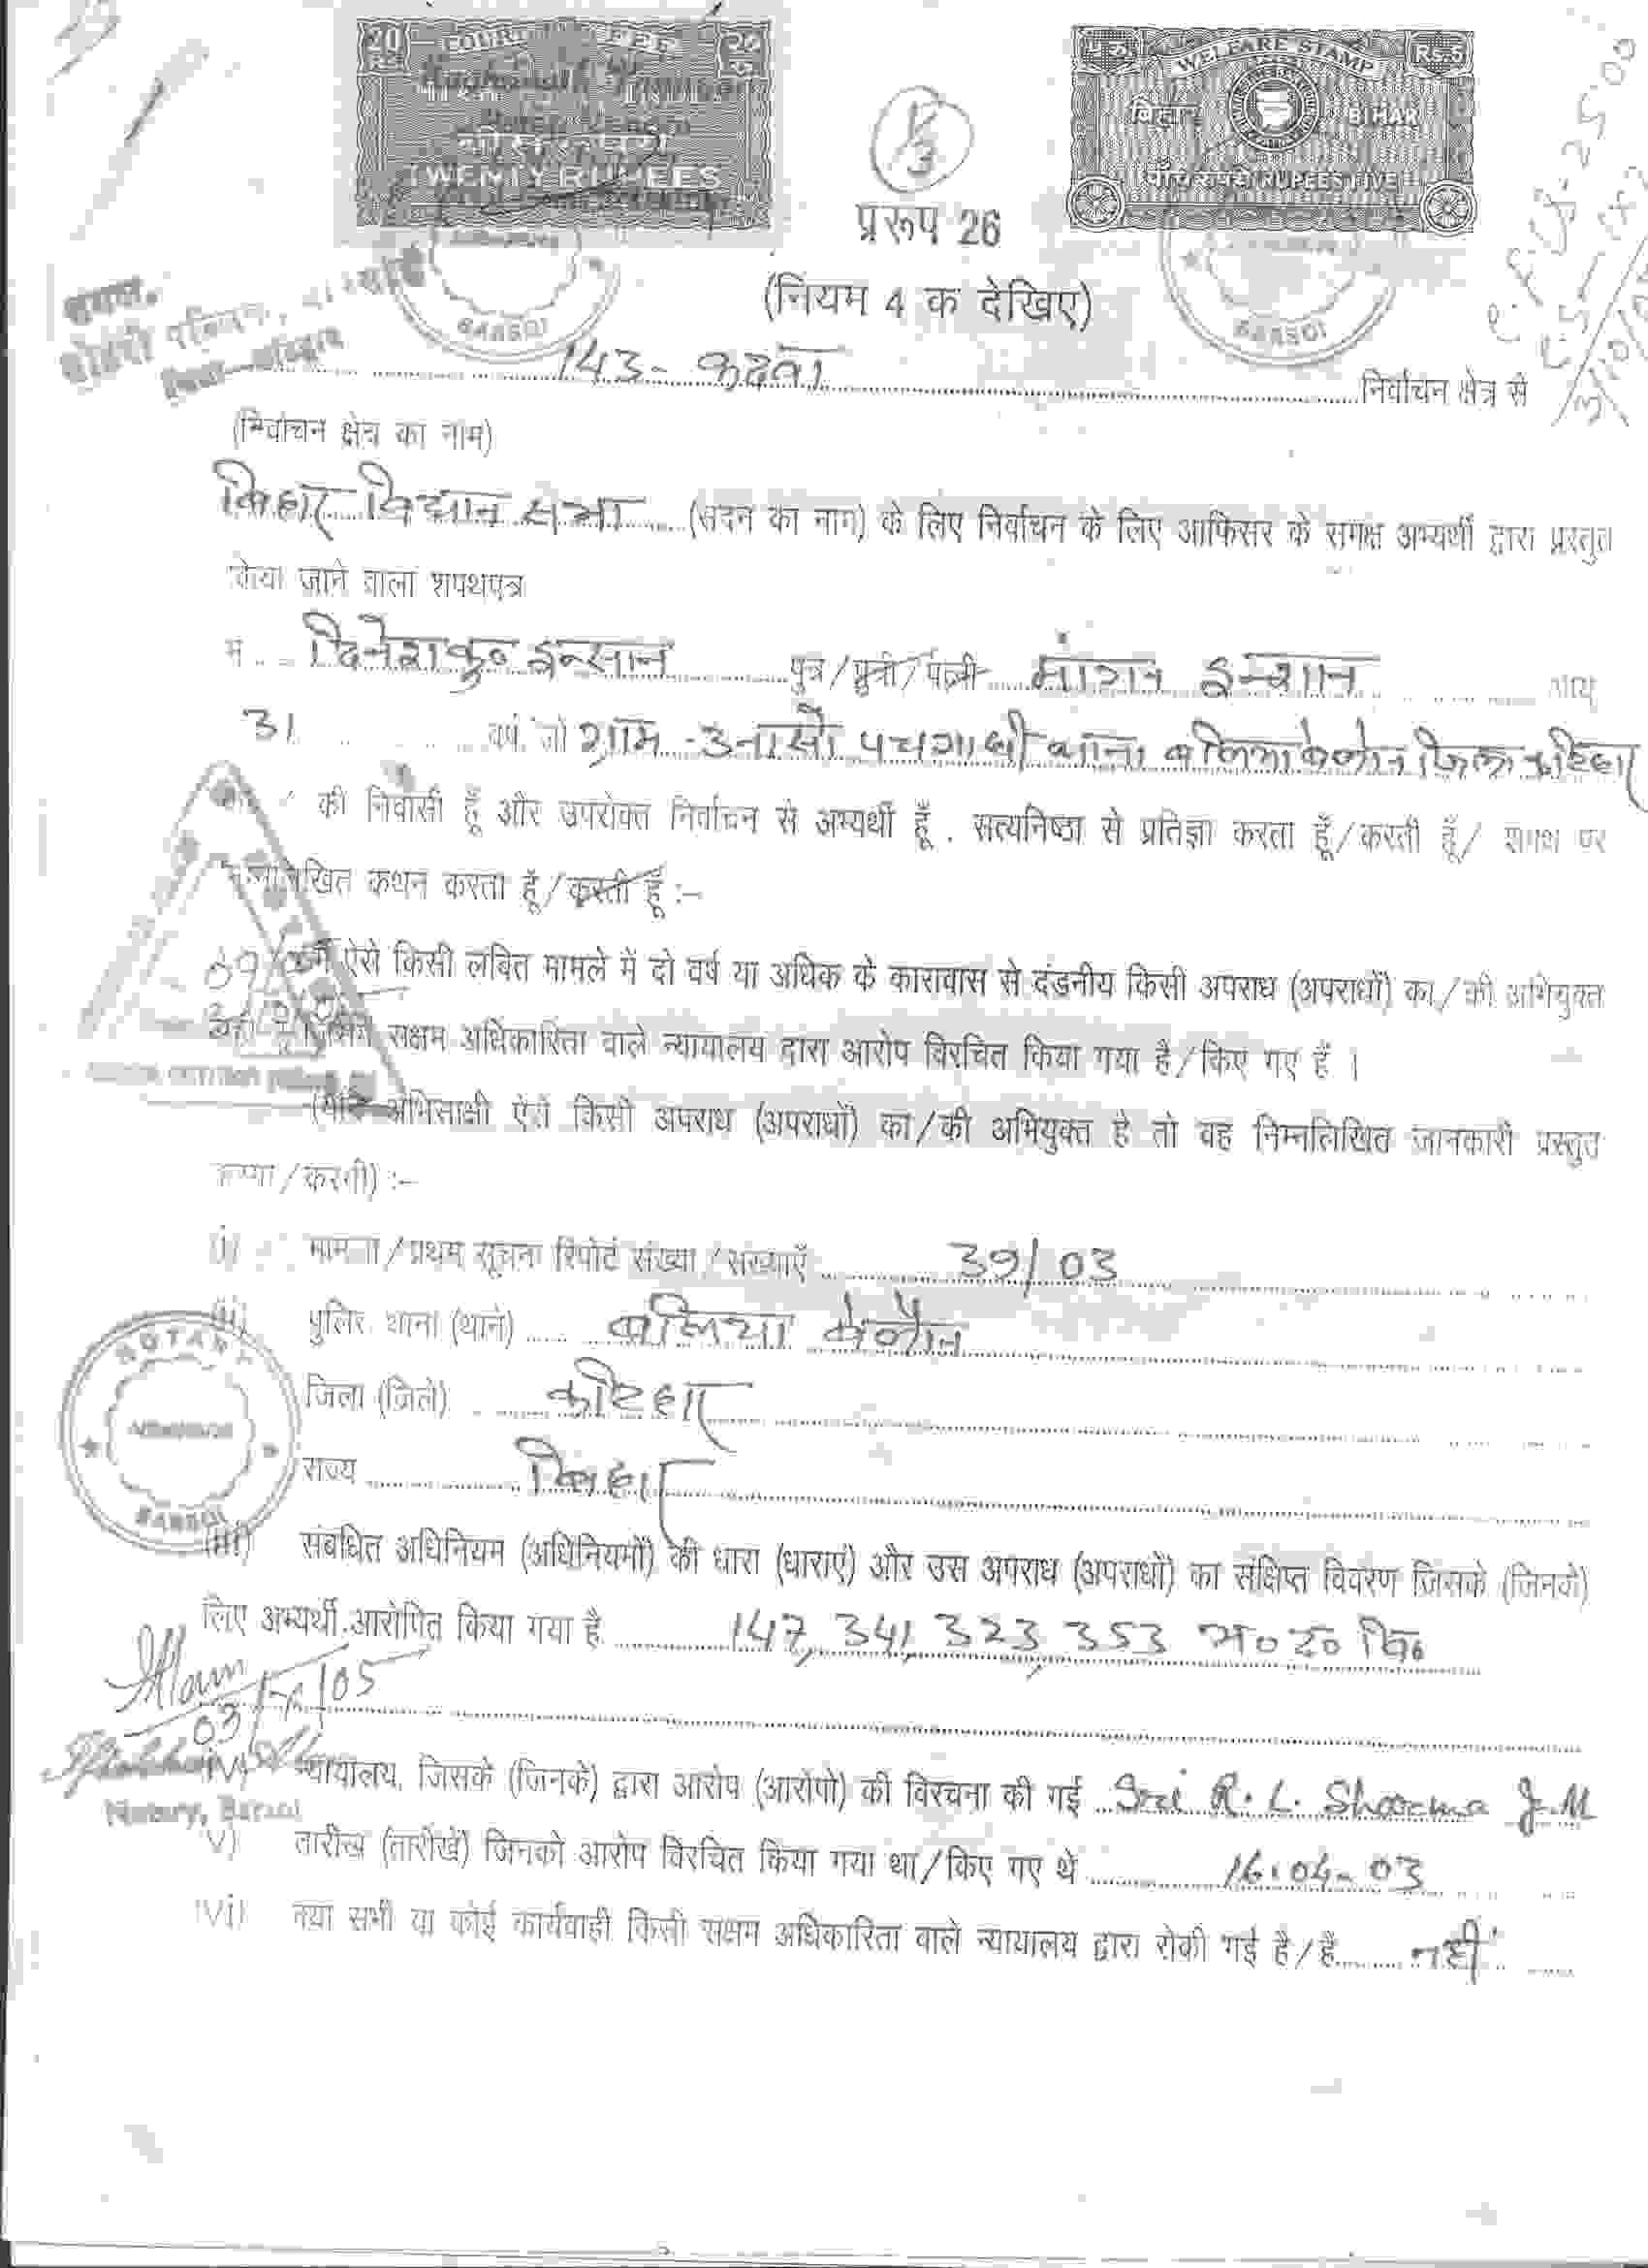 20 COURT FEE
TWENTY RUPEES
WELFARE STAMP Rs.5
बिहार BIHAR
पाँच रुपये RUPEES FIVE
1/3
प्ररूप 26
(नियम 4 क देखिए)
BARSOI
BARSOI
143- कदवा निर्वाचन क्षेत्र से
(निर्वाचन क्षेत्र का नाम)
बिहार विधान सभा (सदन का नाम) के लिए निर्वाचन के लिए आफिसर के समक्ष अभ्यर्थी द्वारा प्रस्तुत
किया जाने वाला शपथपत्र
मैं दिनेश कु० इन्सान पुत्र/पुत्री/पत्नी मांगन इन्शान आयु
31 वर्ष जो ग्राम - उनासो पचगाछी थाना बलिया बेलोन जिला कटिहार
की निवासी हूँ और उपरोक्त निर्वाचन से अभ्यर्थी हूँ . सत्यनिष्ठा से प्रतिज्ञा करता हूँ/करती हूँ/ शपथ पर
कथन करता हूँ/करती हूँ :–
ऐसे किसी लंबित मामले में दो वर्ष या अधिक के कारावास से दंडनीय किसी अपराध (अपराधों) का/की अभियुक्त
सक्षम अधिकारिता वाले न्यायालय द्वारा आरोप विरचित किया गया है/किए गए हैं ।
(यदि अभिसाक्षी ऐसे किसी अपराध (अपराधों) का/की अभियुक्त है तो वह निम्नलिखित जानकारी प्रस्तुत
/करगी) :–
(i) मामला/प्रथम सूचना रिपोर्ट संख्या/संख्याएँ 39/03
(ii) पुलिस थाना (थाने) बलिया बेलौन
जिला (जिले) कटिहार
राज्य बिहार
NOTARY
BARSOI
(iii) संबंधित अधिनियम (अधिनियमों) की धारा (धाराएं) और उस अपराध (अपराधों) का संक्षिप्त विवरण जिसके (जिनके)
लिए अभ्यर्थी आरोपित किया गया है 147, 341, 323, 353 भा० द० वि०
Notary, Barsoi
(iv) न्यायालय, जिसके (जिनके) द्वारा आरोप (आरोपों) की विरचना की गई Sri R. L. Sharma J.M
(v) तारीख (तारीखें) जिनको आरोप विरचित किया गया था/किए गए थे 16.04-03
(vi) क्या सभी या कोई कार्यवाही किसी सक्षम अधिकारिता वाले न्यायालय द्वारा रोकी गई है/हैं नहीं